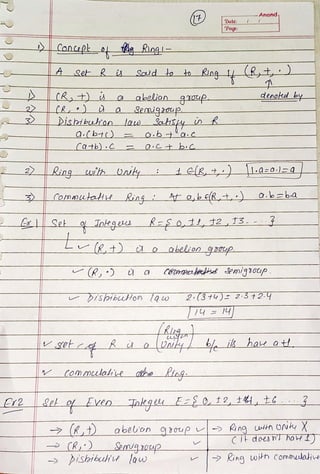 17
Anand
Date: / /
Page:
1) Concept of Ring :-
A set R is said to to Ring If (R, +, ·)
↑
denoted by
1) (R, +) is a abelian group.
2) (R, ·) is a Semigroup.
3) Distribution law Satisfy in R
a.(b+c) = a.b + a.c
(a+b).c = a.c + b.c
2) Ring with Unity : 1 ∈(R, +, .) 1.a=a.1=a
3) Commutative Ring : ∀ a,b∈(R, +, .) a.b=ba
Ex1 Set of Integers R={ 0, ±1, ±2, ±3. . . }
✓ (R, +) is a abelian group
✓ (R, ·) is a semigroup.
✓ Distribution law 2.(3+4) = 2.3+2.4
14 = 14
✓ set of R is a (Ring with Unity) b/c it's have a 1.
✓ commutative Ring.
Ex2 Set of Even Integers E={ 0, ±2, ±4, ±6 ... }
→ (R, +) abelian group ✓ → Ring with Unity X
(it doesn't have 1)
→ (R, ·) Semigroup ✓
→ Distributive law ✓ → Ring with commutative